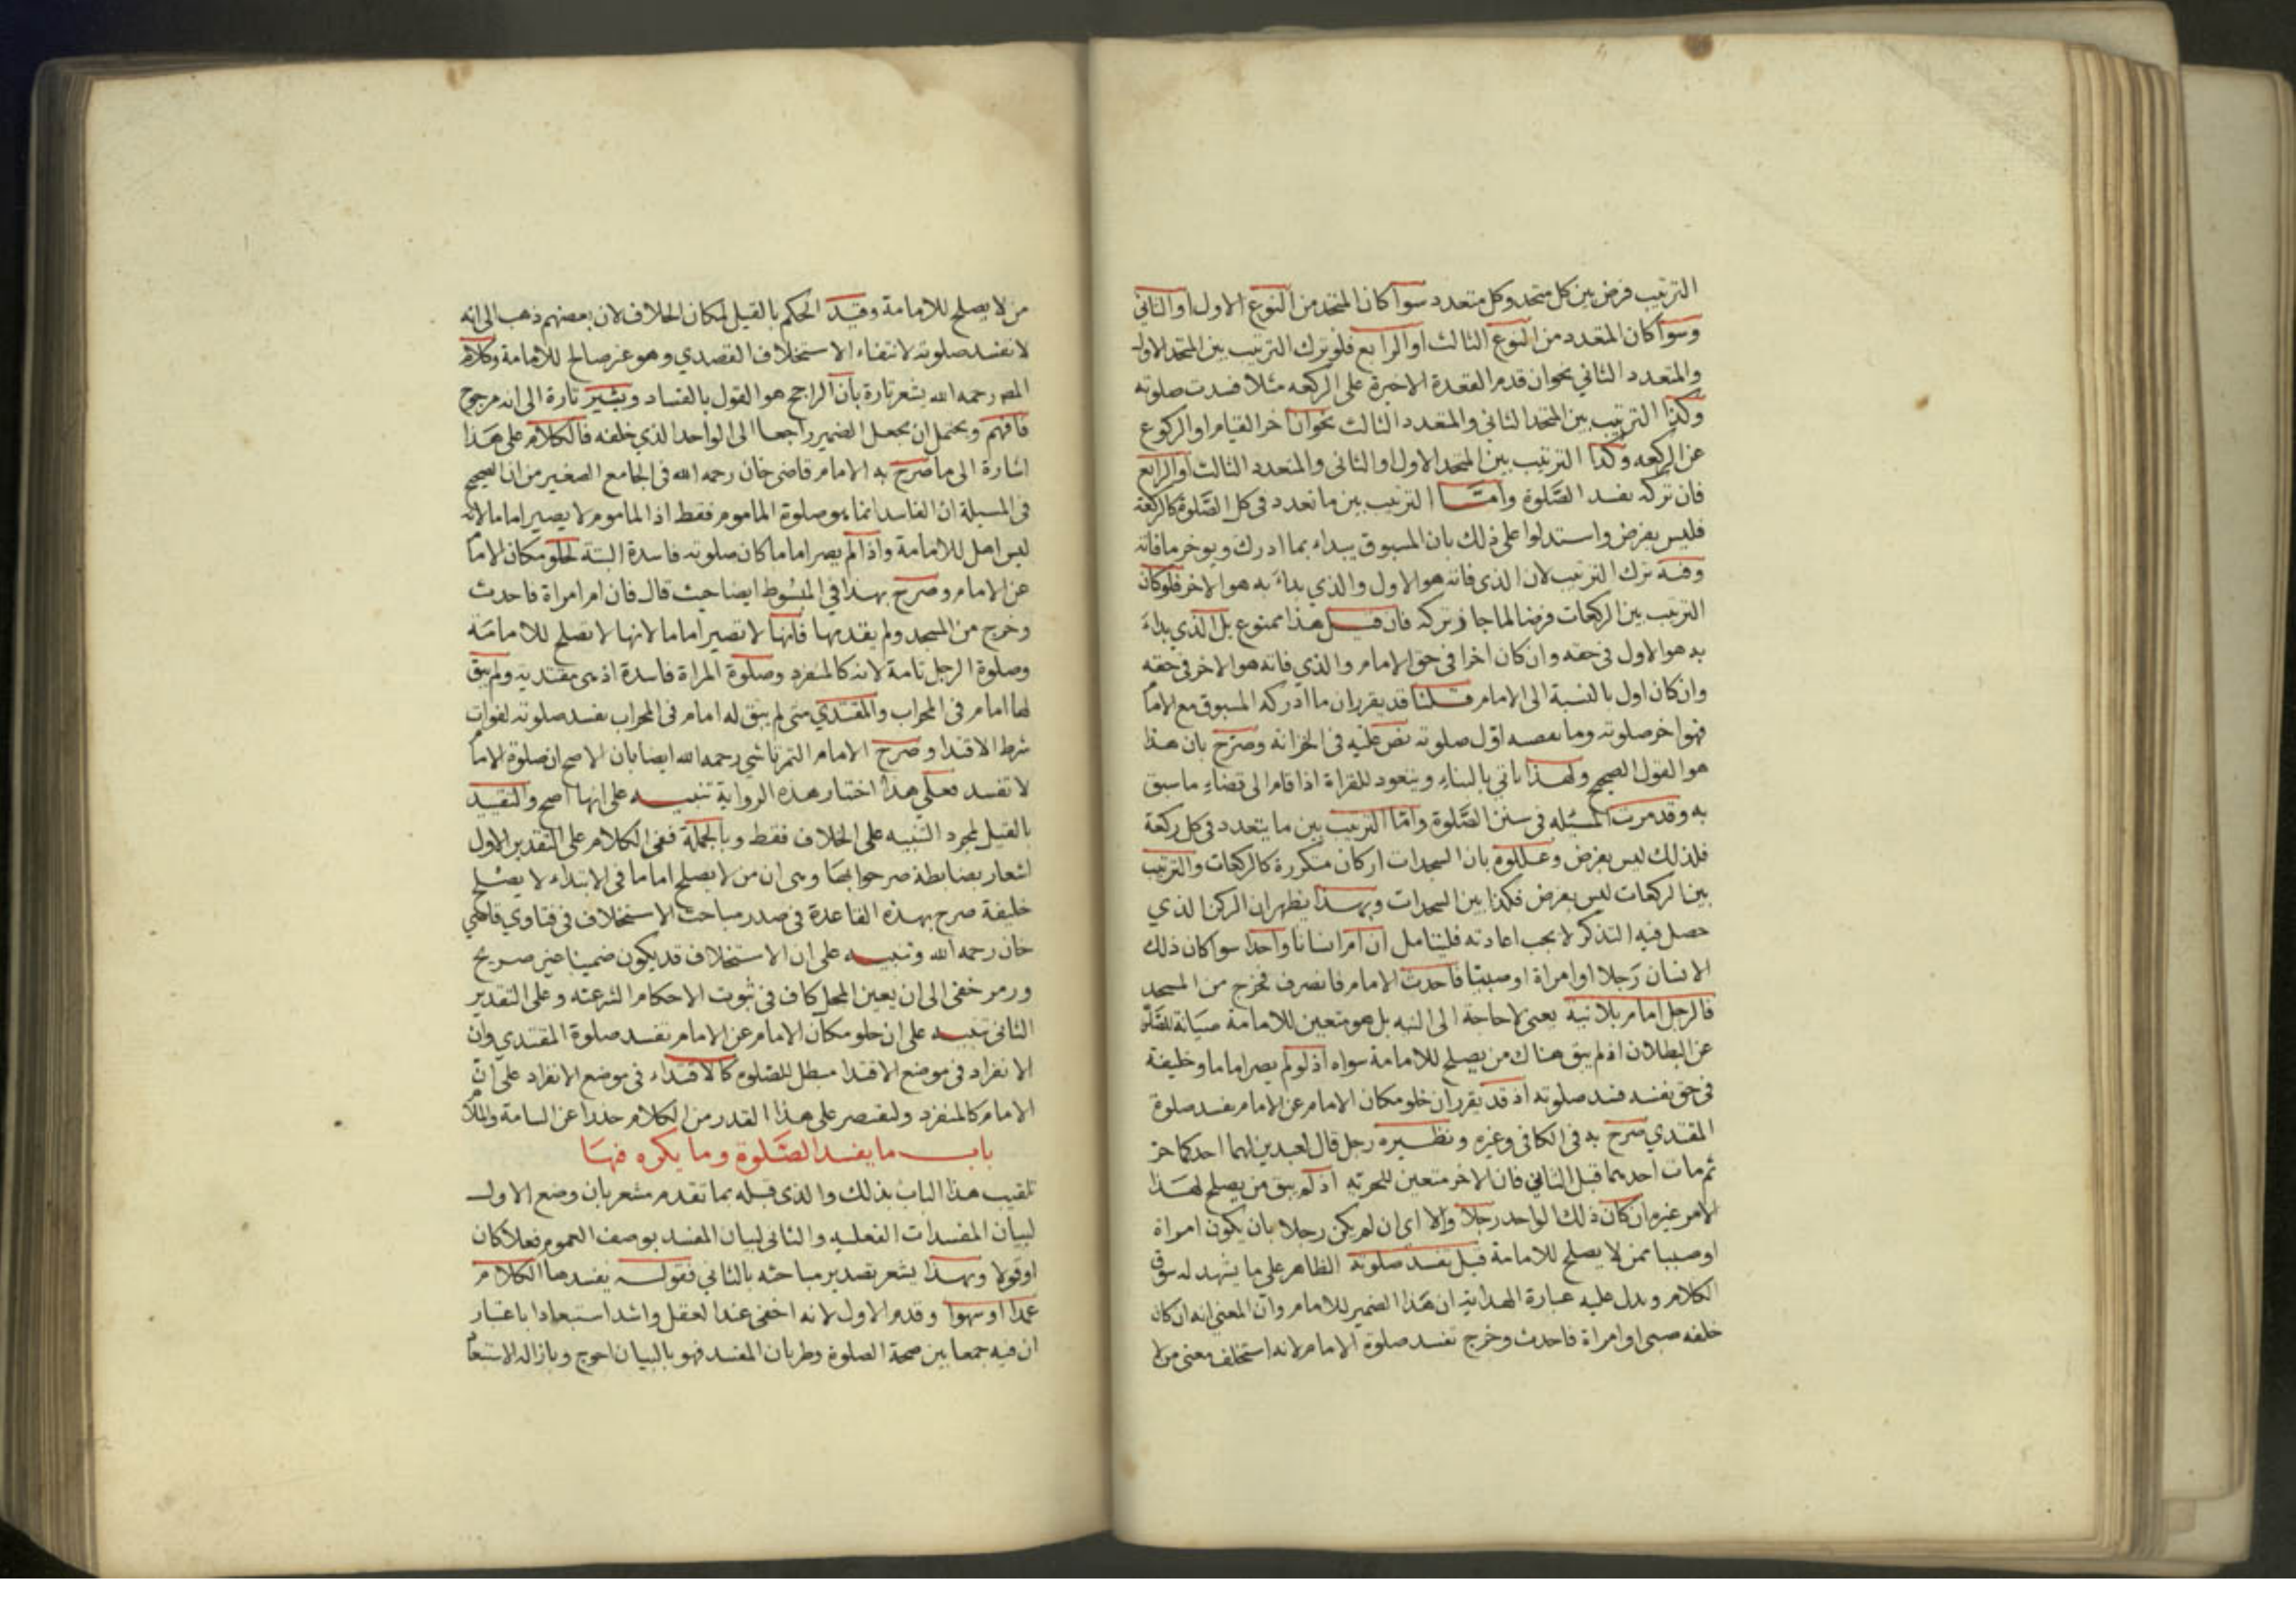 الترتيب فرض بين كل متحد وكل متعدد سوا كان المتحد من النوع الاول او الثاني
وسوا كان المتعدد من النوع الثالث او الرابع فلو ترك الترتيب بين المتحد الاول
والمتعدد الثاني نحو ان قدم القعدة الاخيرة على الركعه مثلا فسدت صلوته
وكذا الترتيب بين المتحد الثاني والمتعدد الثالث نحو ان اخر القيام او الركوع
عن الركعه وكذا الترتيب بين المتحد الاول او الثاني والمتعدد الثالث او الرابع
فان تركه يفسد الصلوة واما الترتيب بين ما تعدد في كل الصلوة كالركعة
فليس بفرض واستدلوا على ذلك بان المسبوق يبداء بما ادرك ويوخر ما فاته
وفيه ترك الترتيب لان الذي فاته هو الاول والذي بداء به هو الاخر فلو كان
الترتيب بين الركعات فرضا لما جاز تركه فان قيل هذا ممنوع بل الذي بداء
به هو الاول في حقه وان كان اخرا في حق الامام والذي فاته هو الاخر في حقه
وان كان اول بالنسبة الى الامام قلنا قد يقرر ان ما ادركه المسبوق مع الاما
فهو اخر صلوته وما يقضيه اول صلوته نص عليه في الخزانة وصرح بان هذا
هو القول الصحيح ولهذا ياتي بالثناء ويتعود للقراة اذا قام الى قضاء ما سبق
به وقد مرت المسئله في سنن الصلوة واما الترتيب بين ما يتعدد في كل ركعة
فلذلك ليس بفرض وعللوه بان السجدات اركان متكررة كالركعات والترتيب
بين الركعات ليس بفرض فكذا بين السجدات وبهذا يظهر ان الركن الذي
حصل فيه التذكر لا يجب اعادته فليتامل ان ام انسانا واحدا سوا كان ذلك
الانسان رجلا او امراة او صبيا فاحدث الامام فانصرف فخرج من المسجد
فالرجل امام بلا نية يعني لا حاجة الى النيه بل هو متعين للامامة صيانة للصلو
عن البطلان اذ لم يبق هناك من يصلح للامامة سواه اذ لو لم يصر اماما وخليفة
في حق نفسه فسد صلوته اذ قد يقرر ان خلو مكان الامام عن الامام يفسد صلوة
المقتدي صرح به في الكافي وغيره ونظيره رجل قال لعبدين لهما احدكما حر
ثم مات احدهما قبل الثاني فان الاخر متعين للحرية اذ لم يبق من يصلح لهذا
الامر غيره ان كان ذلك الواحد رجلا والا اي ان لم يكن رجلا بان يكون امراة
او صبيا ممن لا يصلح للامامة قيل تفسد صلوته الظاهر على ما يشهد له سوق
الكلام ويدل عليه عبارة الهداية ان هذا الضمير للامام وان المعنى انه ان كان
خلفه صبي او امراة فاحدث وخرج تفسد صلوة الامام لانه استخلف معنى من لا
من لا يصلح للامامة وقيد الحكم بالقيل لمكان الخلاف لان بعضهم ذهب الى انه
لا تفسد صلوته لانتفاء الاستخلاف القصدي وهو غير صالح للامامة وكلام
المص رحمه الله يشعر تارة بان الراجح هو القول بالفساد ويشير تارة الى انه مرجوح
فافهم ويحتمل ان يجعل الضمير راجعا الى الواحد الذي خلفه فالكلام على هذا
اشارة الى ما صرح به الامام قاضي خان رحمه الله في الجامع الصغير من ان الصحيح
في المسيلة ان الفاسد انما هو صلوة الماموم فقط اذ الماموم لا يصير اماما لانه
ليس اهل للامامة واذا لم يصر اماما كان صلوته فاسدة البتة لخلو مكان الاما
عن الامام وصرح بهذا في المبسوط ايضا حيث قال فان ام امراة فاحدث
وخرج من المسجد ولم يقدمها فانها لا تصير اماما لانها لا تصلح للامامة
وصلوة الرجل تامة لانه كالمنفرد وصلوة المراة فاسدة اذ هي مقتدية ولم يبق
لها امام في المحراب والمقتدي متى لم يبق له امام في المحراب تفسد صلوته لفوات
شرط الاقتدا وصرح الامام التمرتاشي رحمه الله ايضا بان الاصح ان صلوة الاما
لا تفسد فعلى هذا اختيار هذه الرواية تنبيه على انها اصح والتقييد
بالقيل لمجرد التنبيه على الخلاف فقط وبالجملة ففي الكلام على التقدير الاول
اشعار بضابطة صرحوا بها وهي ان من لا يصلح اماما في الابتداء لا يصلح
خليفة صرح بهذه القاعدة في صدر مباحث الاستخلاف في فتاوي قاضي
خان رحمه الله وتنبيه على ان الاستخلاف قد يكون ضمينا غير صريح
ورمز خفي الى ان يعين المحل كاف في ثبوت الاحكام الشرعية وعلى التقدير
الثاني تنبيه على ان خلو مكان الامام عن الامام تفسد صلوة المقتدي وان
الانفراد في موضع الاقتدا مبطل للصلوه كالاقتداء في موضع الانفراد على ان
الامام كالمنفرد ولنقتصر على هذا القدر من الكلام حذرا عن السامة والملا
باب ما يفسد الصلوة وما يكره فيها
تلقيب هذا الباب بذلك والذي قبله بما تقدم مشعر بان وضع الاول
لبيان المفسدات الفعليه والثاني لبيان المفسد بوصف العموم فعلا كان
او قولا وبهذا يشعر تصدير مباحثه بالثاني فقوله يفسدها الكلام
عمدا او سهوا وقدم الاول لانه اخفى عند العقل واشد استبعادا باعتبار
ان فيه جمعا بين صحة الصلوة وطريان المفسد فهو بالبيان احوج وبازاله الاستبعا